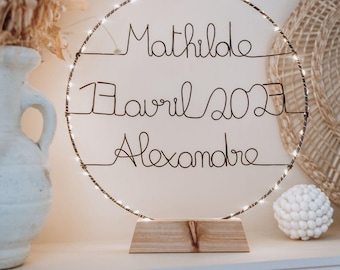 Mathilde
17 avril 2027
Alexandre